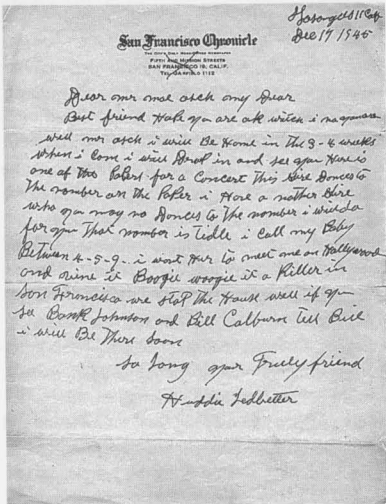 Dec 17 1945
San Francisco Chronicle
THE CITY'S ONLY HOME-OWNED NEWSPAPER
FIFTH AND MISSION STREETS
SAN FRANCISCO 19, CALIF.
TEL. GARFIELD 1112
Dear mr moe asch my Dear
Best friend Hope you are ok witch i no you are
well mr asch i will Be Home in the 3-4 weeks
when i come i will Drop in and see you Here is
one of the Papers for a Concert this Gire Donces to
the nomber on the Paper i Have a nather Gire
who you may no Donces to the nomber i will do
for you That nomber is tidle i call my Baby
Between 4-5-9- i wont Her to meet me on Hallywood
and vine it Boogie woogie it a Killer in
San Froncisco we stop the House well if you
see Bank Johnson and Bill Calburn tell Bill
i will Be There soon
So Long your Truly friend
Huddie Ledbetter